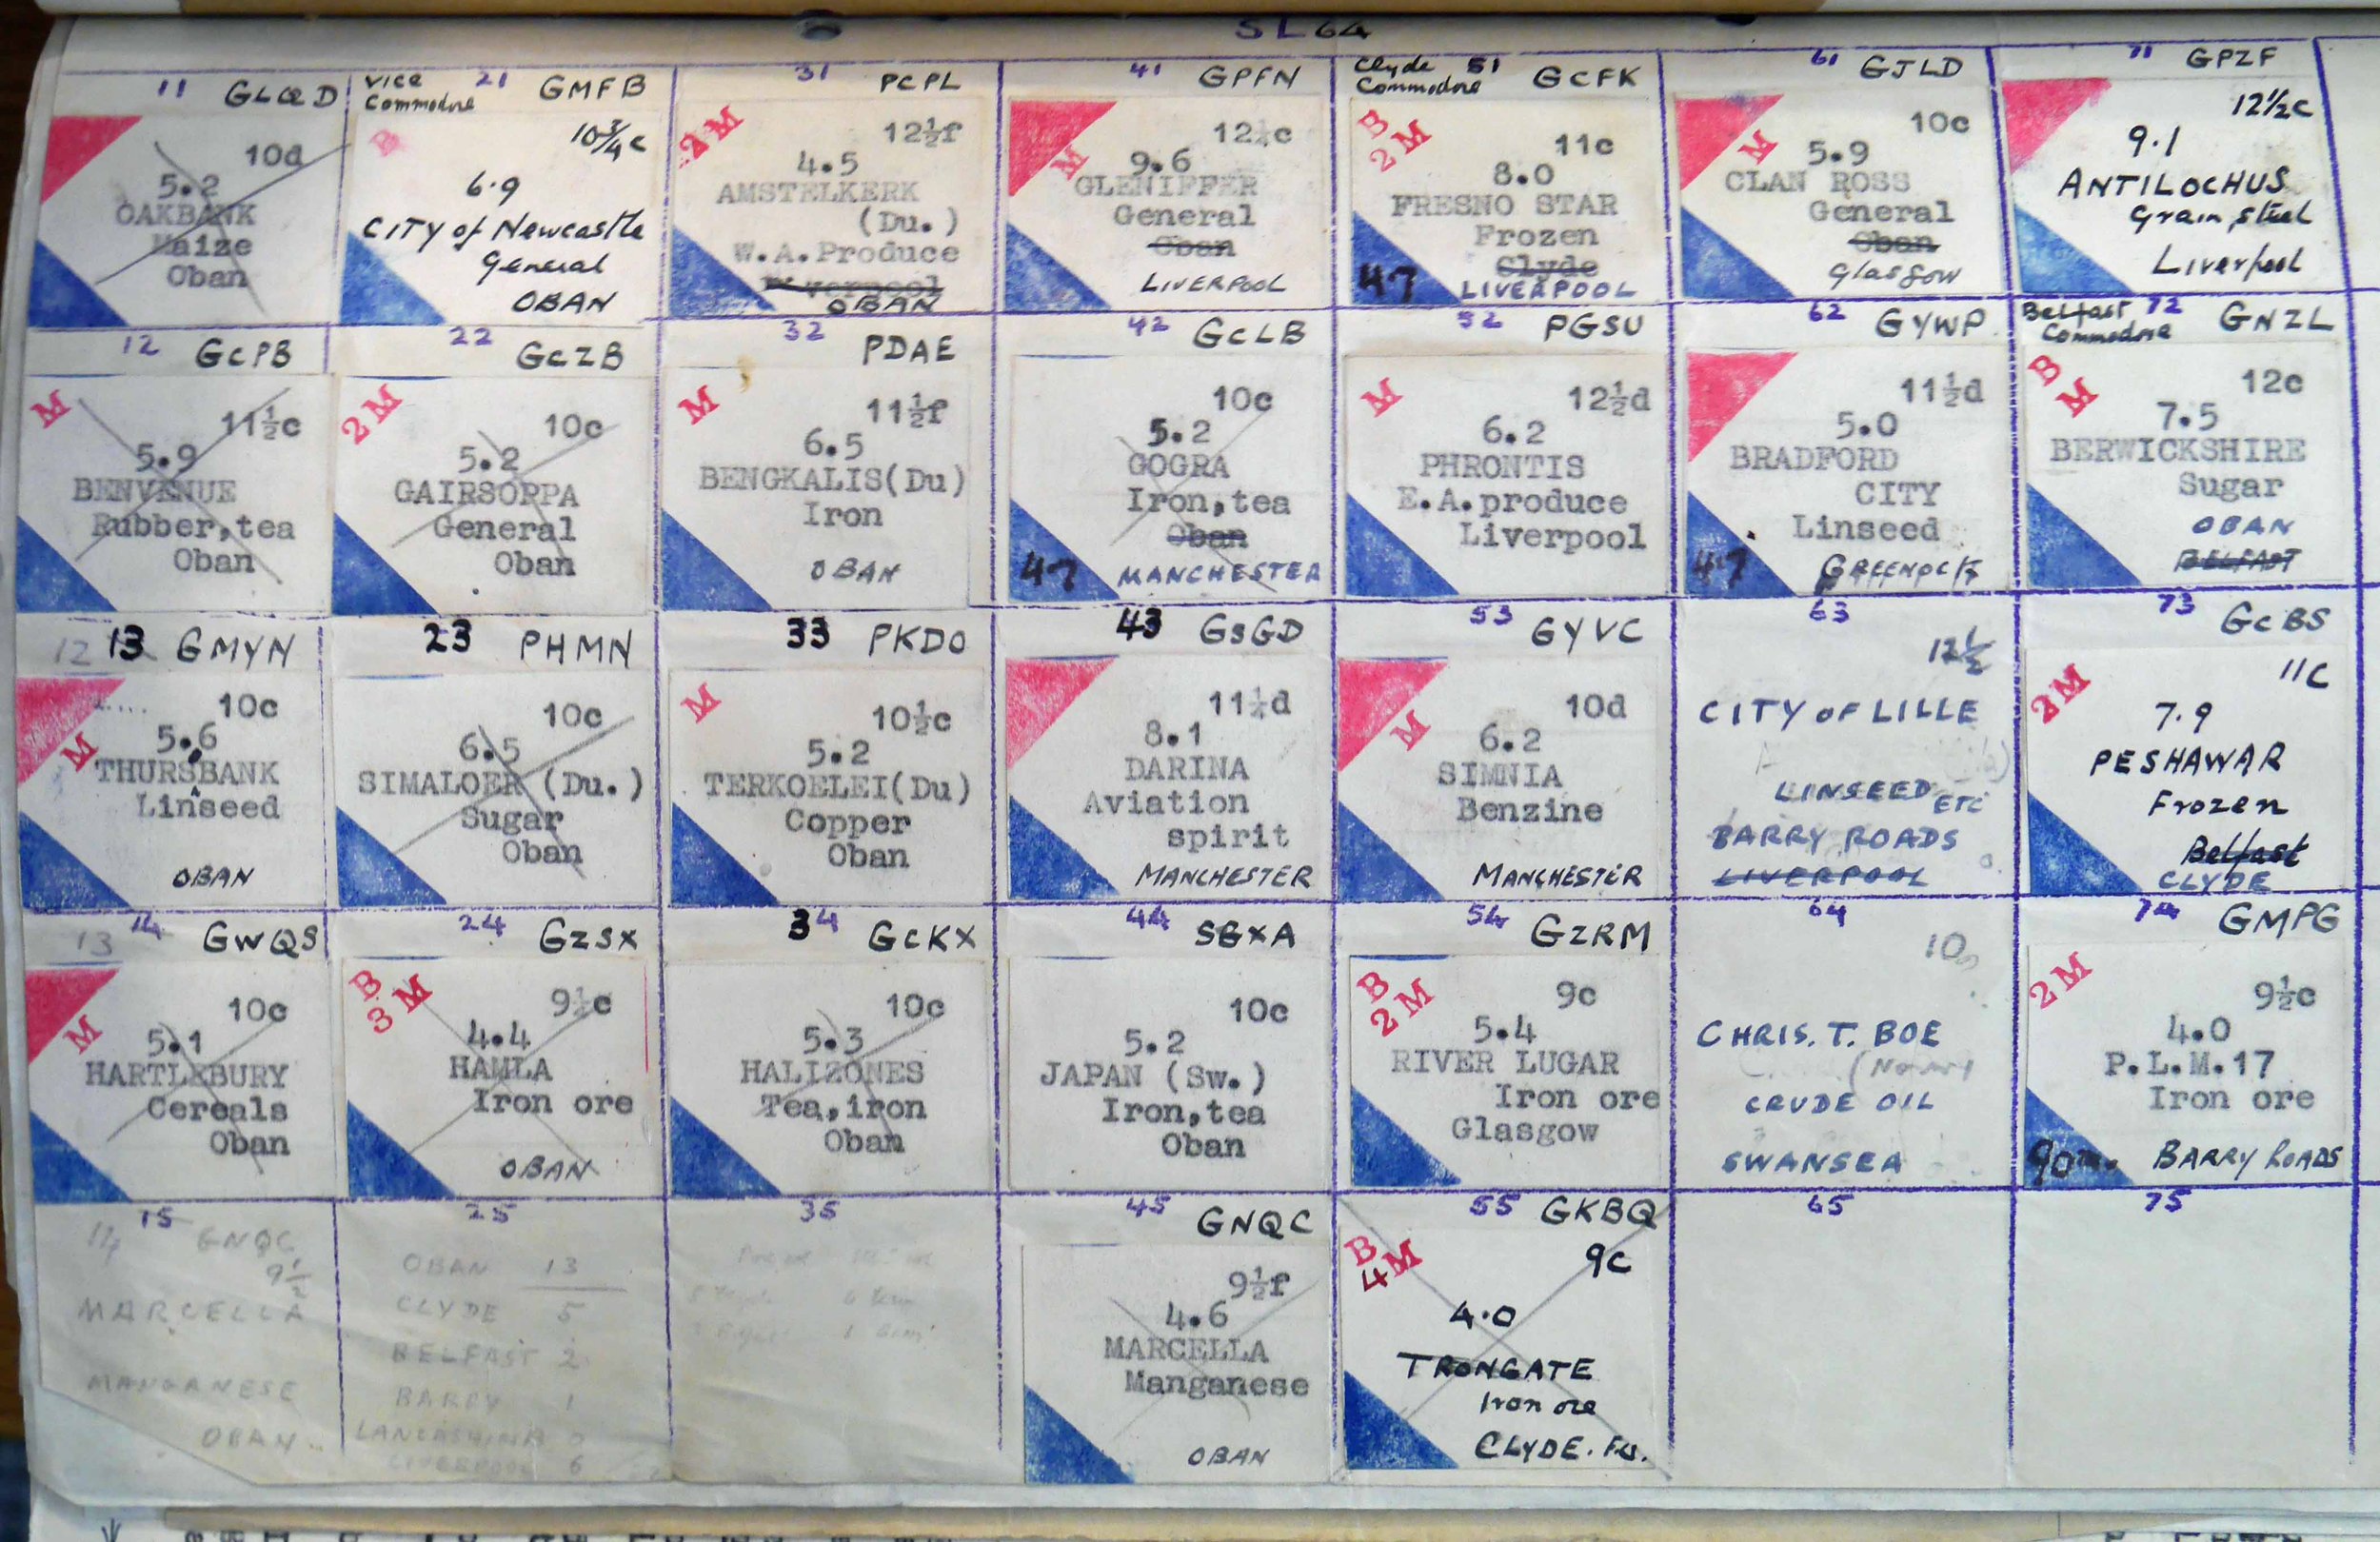 SL64
11 GLQD
10d
5.2
OAKBANK
Maize
Oban
Vice Commodore 21 GMFB
B
10¾c
6.9
CITY of Newcastle
General
OBAN
31 PCPL
2M
12½f
4.5
AMSTELKERK
(Du.)
W.A.Produce
OBAN
41 GPFN
M
9.6
GLENIFFER
General
Oban
LIVERPOOL
Clyde Commodore 51 GCFK
B
2M
11c
8.0
FRESNO STAR
Frozen
Clyde
47 LIVERPOOL
61 GJLD
M
10c
5.9
CLAN ROSS
General
Oban
Glasgow
71 GPZF
12½c
9.1
ANTILOCHUS
Grain, steel
Liverpool
12 GCPB
M
11½c
5.9
BENVENUE
Rubber,tea
Oban
22 GCZB
2M
10c
5.2
GAIRSOPPA
General
Oban
32 PDAE
M
11½f
6.5
BENGKALIS(Du)
Iron
OBAN
42 GCLB
10c
5.2
GOGRA
Iron,tea
Oban
47 MANCHESTER
52 PGSU
M
12½d
6.2
PHRONTIS
E.A.produce
Liverpool
62 GYWP
11½d
5.0
BRADFORD
CITY
Linseed
47 GREENOCK
Belfast Commodore 72 GNZL
B
M
12c
7.5
BERWICKSHIRE
Sugar
OBAN
BELFAST
12 13 GMYN
M
10c
5.6
THURSBANK
Linseed
OBAN
23 PHMN
10c
6.5
SIMALOER (Du.)
Sugar
Oban
33 PKDO
M
10½c
5.2
TERKOELEI(Du)
Copper
Oban
43 GSGD
11¼d
8.1
DARINA
Aviation
spirit
MANCHESTER
53 GYVC
M
10d
6.2
SIMNIA
Benzine
MANCHESTER
63
12½
CITY OF LILLE
LINSEED ETC
BARRY ROADS
LIVERPOOL
73 GCBS
2M
11C
7.9
PESHAWAR
Frozen
Belfast
CLYDE
13 14 GWQS
M
10c
5.1
HARTLEBURY
Cereals
Oban
24 GZSX
B
3M
9½c
4.4
HAMLA
Iron ore
OBAN
34 GCKX
10c
5.3
HALIZONES
Tea,iron
Oban
44 SGXA
10c
5.2
JAPAN (Sw.)
Iron,tea
Oban
54 GZRM
B
2M
9c
5.4
RIVER LUGAR
Iron ore
Glasgow
64
10
CHRIS. T. BOE
CRUDE OIL
SWANSEA
74 GMPG
2M
9½c
4.0
P.L.M.17
Iron ore
BARRY ROADS
15
GNQC
9½
MARCELLA
MANGANESE
OBAN
25
OBAN 13
CLYDE 5
BELFAST 2
BARRY 1
LIVERPOOL 6
35
45 GNQC
9½f
4.6
MARCELLA
Manganese
OBAN
55 GKBQ
B
4M
9c
4.0
TRONGATE
Iron ore
CLYDE.
65
75